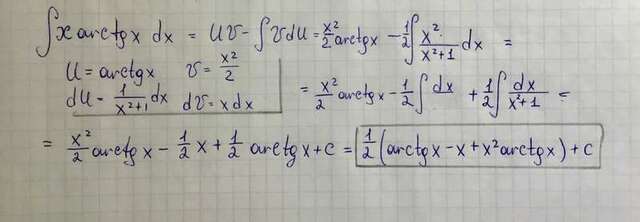 ∫x arctgx dx = uv - ∫vdu = x²/2 arctgx - 1/2 ∫ x²/(x²+1) dx =
u = arctgx v = x²/2
du = 1/(x²+1) dx dv = xdx
= x²/2 arctgx - 1/2 ∫dx + 1/2 ∫ dx/(x²+1) =
= x²/2 arctgx - 1/2 x + 1/2 arctgx + c = 1/2 (arctgx - x + x² arctgx) + c